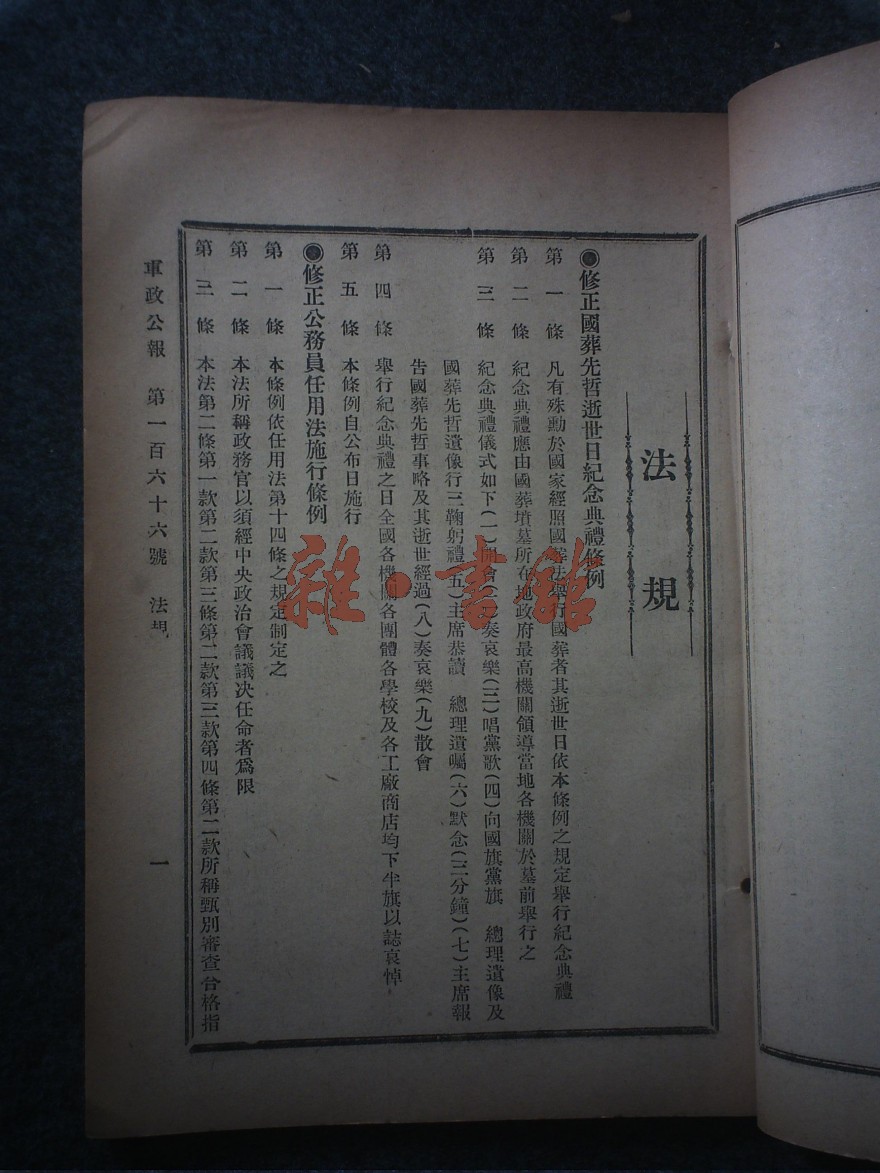 法規
◉修正國葬先哲逝世日紀念典禮條例
第一條 凡有殊勳於國家經照國葬法舉行國葬者其逝世日依本條例之規定舉行紀念典禮
第二條 紀念典禮應由國葬墳墓所在地政府最高機關領導當地各機關於墓前舉行之
第三條 紀念典禮儀式如下(一)開會(二)奏哀樂(三)唱黨歌(四)向國旗黨旗 總理遺像及
國葬先哲遺像行三鞠躬禮(五)主席恭讀 總理遺囑(六)默念(三分鐘)(七)主席報
告國葬先哲事略及其逝世經過(八)奏哀樂(九)散會
第四條 舉行紀念典禮之日全國各機關各團體各學校及各工廠商店均下半旗以誌哀悼
第五條 本條例自公布日施行
◉修正公務員任用法施行條例
第一條 本條例依任用法第十四條之規定制定之
第二條 本法所稱政務官以須經中央政治會議議決任命者爲限
第三條 本法第二條第一款第二款第三條第二款第三款第四條第二款所稱甄別審查合格指
軍政公報 第一百六十六號 法規 一
雜·書館